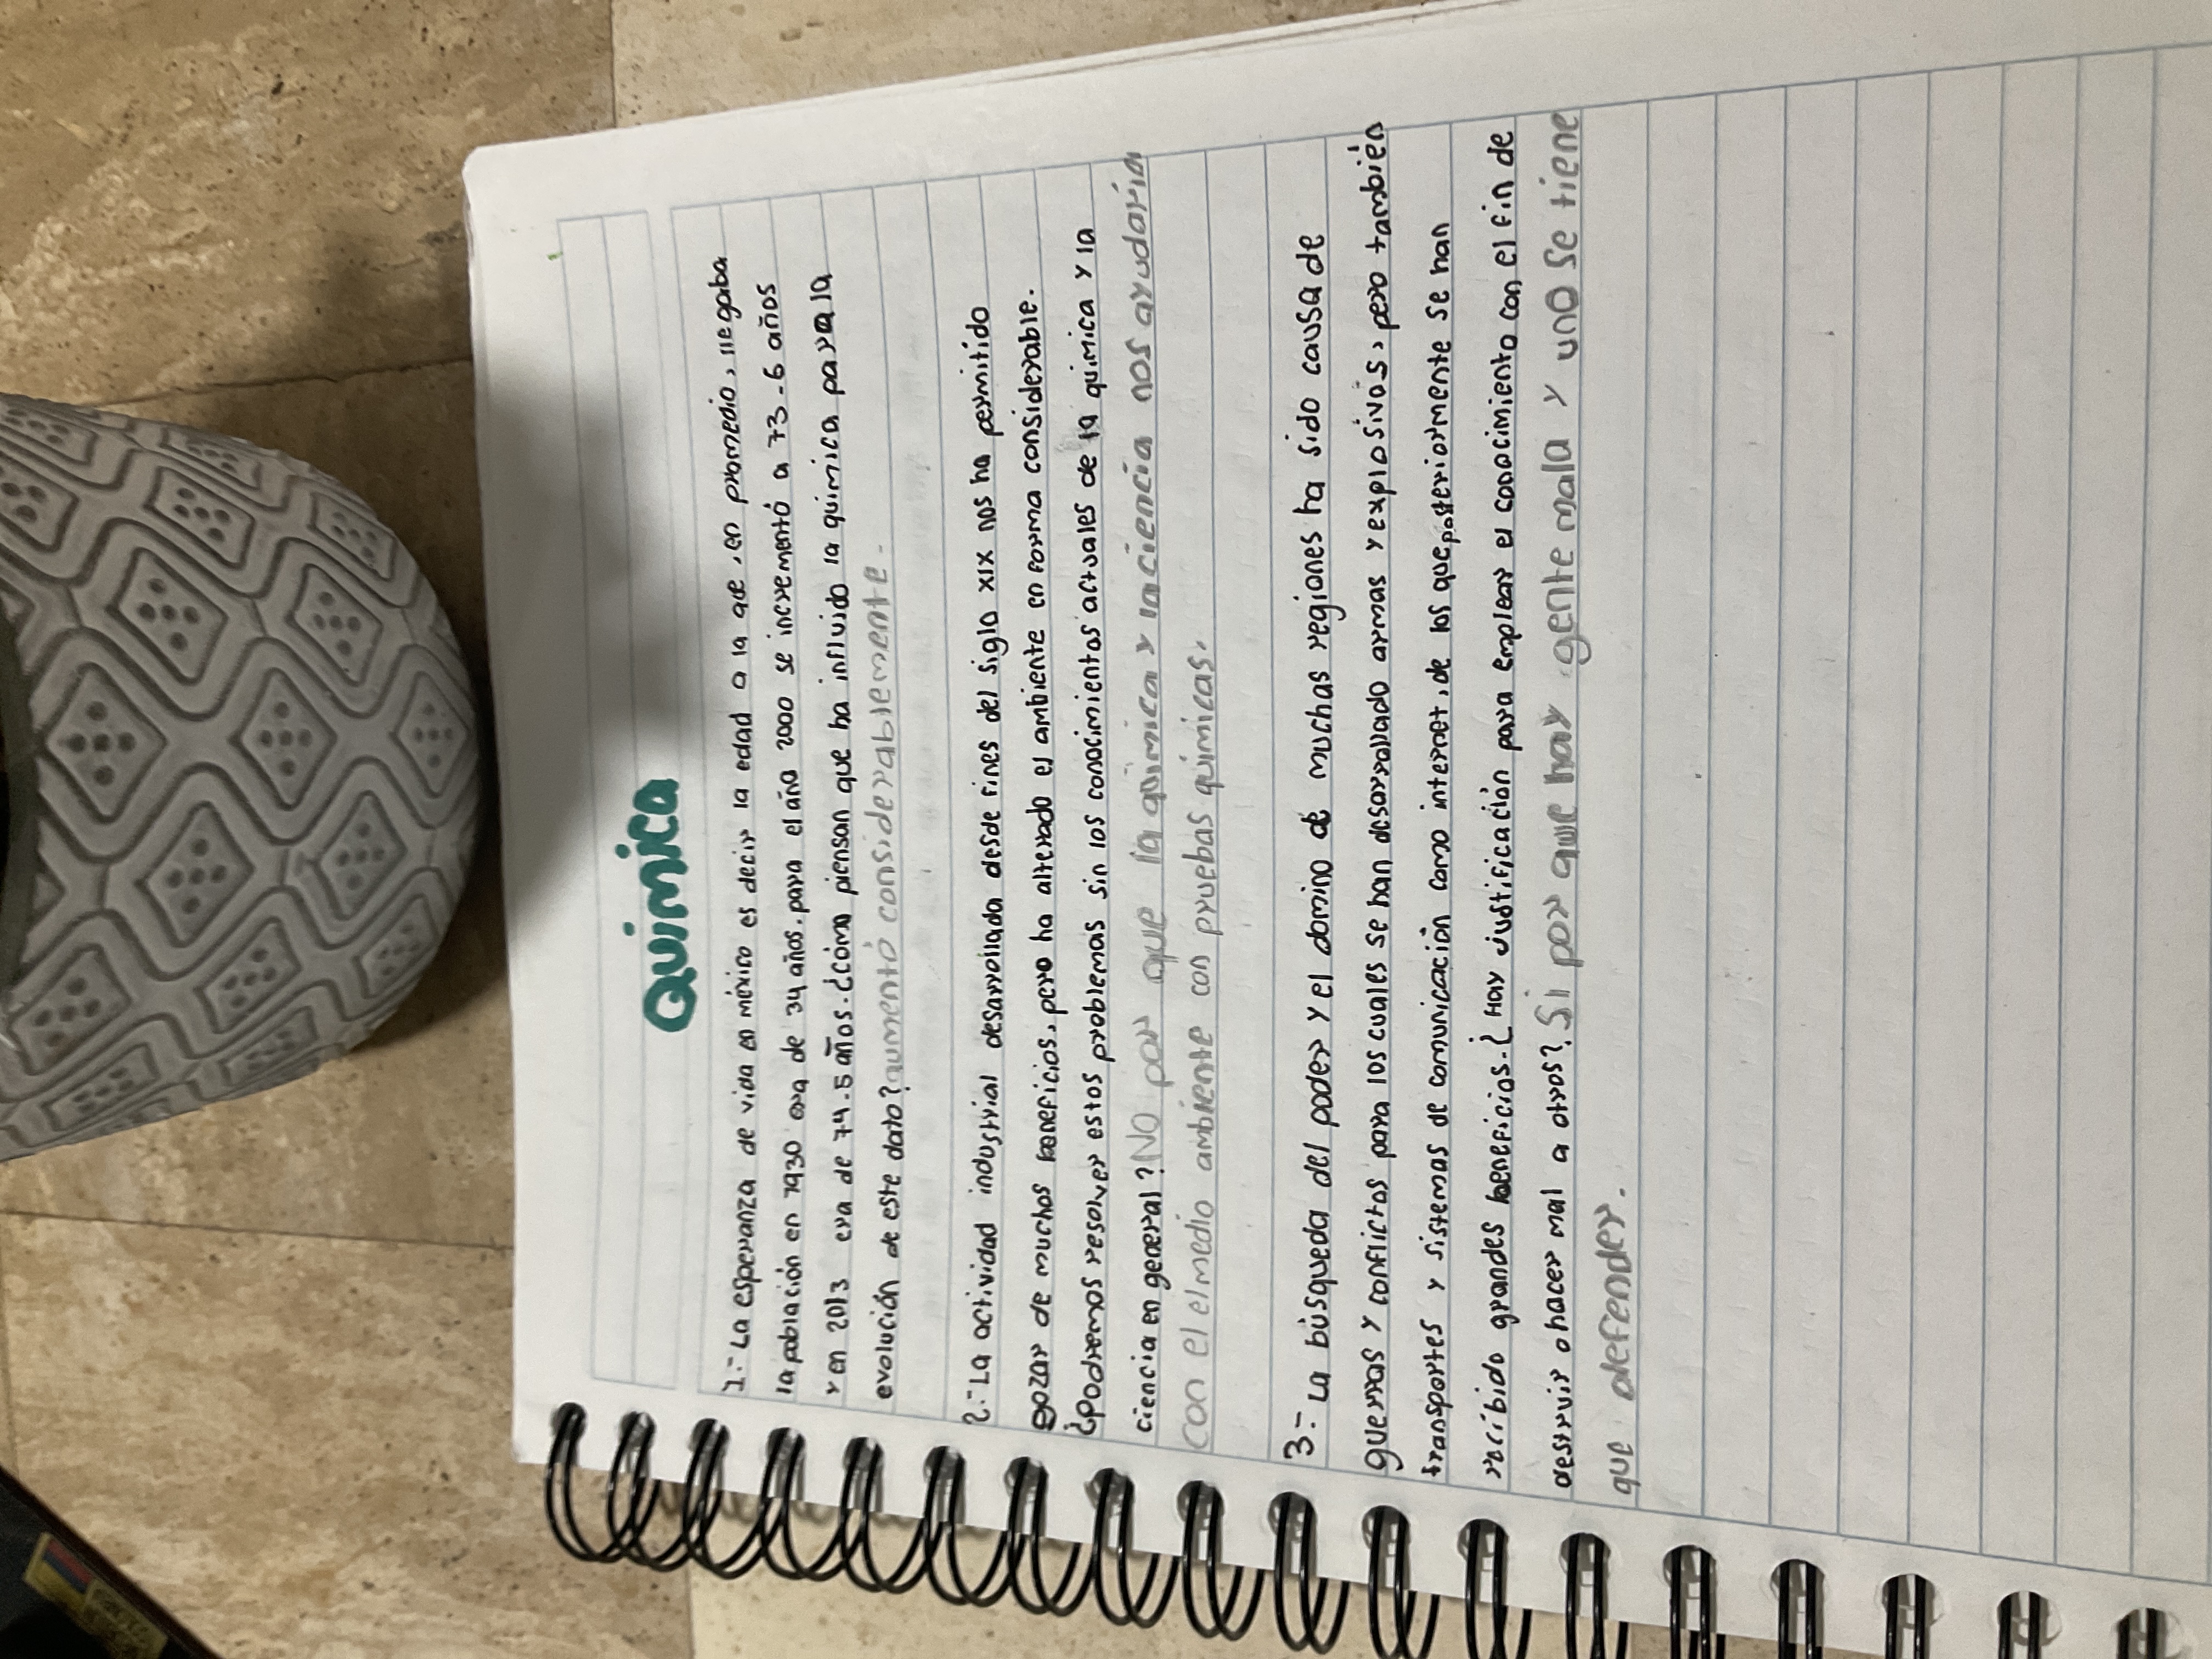 Quimica
1.- La esperanza de vida en méxico es decir la edad a la que, en promedio, llegaba
la población en 1930 era de 34 años. para el año 2000 se incrementó a 73.6 años
y en 2013 era de 74.5 años. ¿cómo piensan que ha influido la quimica para la
evolución de este dato? aumentó considerablemente.
2.- La actividad industrial desarrollada desde fines del siglo XIX nos ha permitido
gozar de muchos beneficios, pero ha alterado el ambiente en forma considerable.
¿Podremos resolver estos problemas sin los conocimientos actuales de la quimica y la
ciencia en general? NO por que la quimica y la ciencia nos ayudaria
con el el medio ambiente con pruebas quimicas.
3.- La búsqueda del poder y el domino de muchas regiones ha sido causa de
guerras y conflictos para los cuales se han desarrollado armas y explosivos, pero también
transportes y sistemas de comunicación como internet, de los que posteriormente se han
recibido grandes beneficios. ¿ Hay justificación para emplear el conocimiento con el fin de
destruir o hacer mal a otros? Si por que hay gente mala y uno se tiene
que defender.